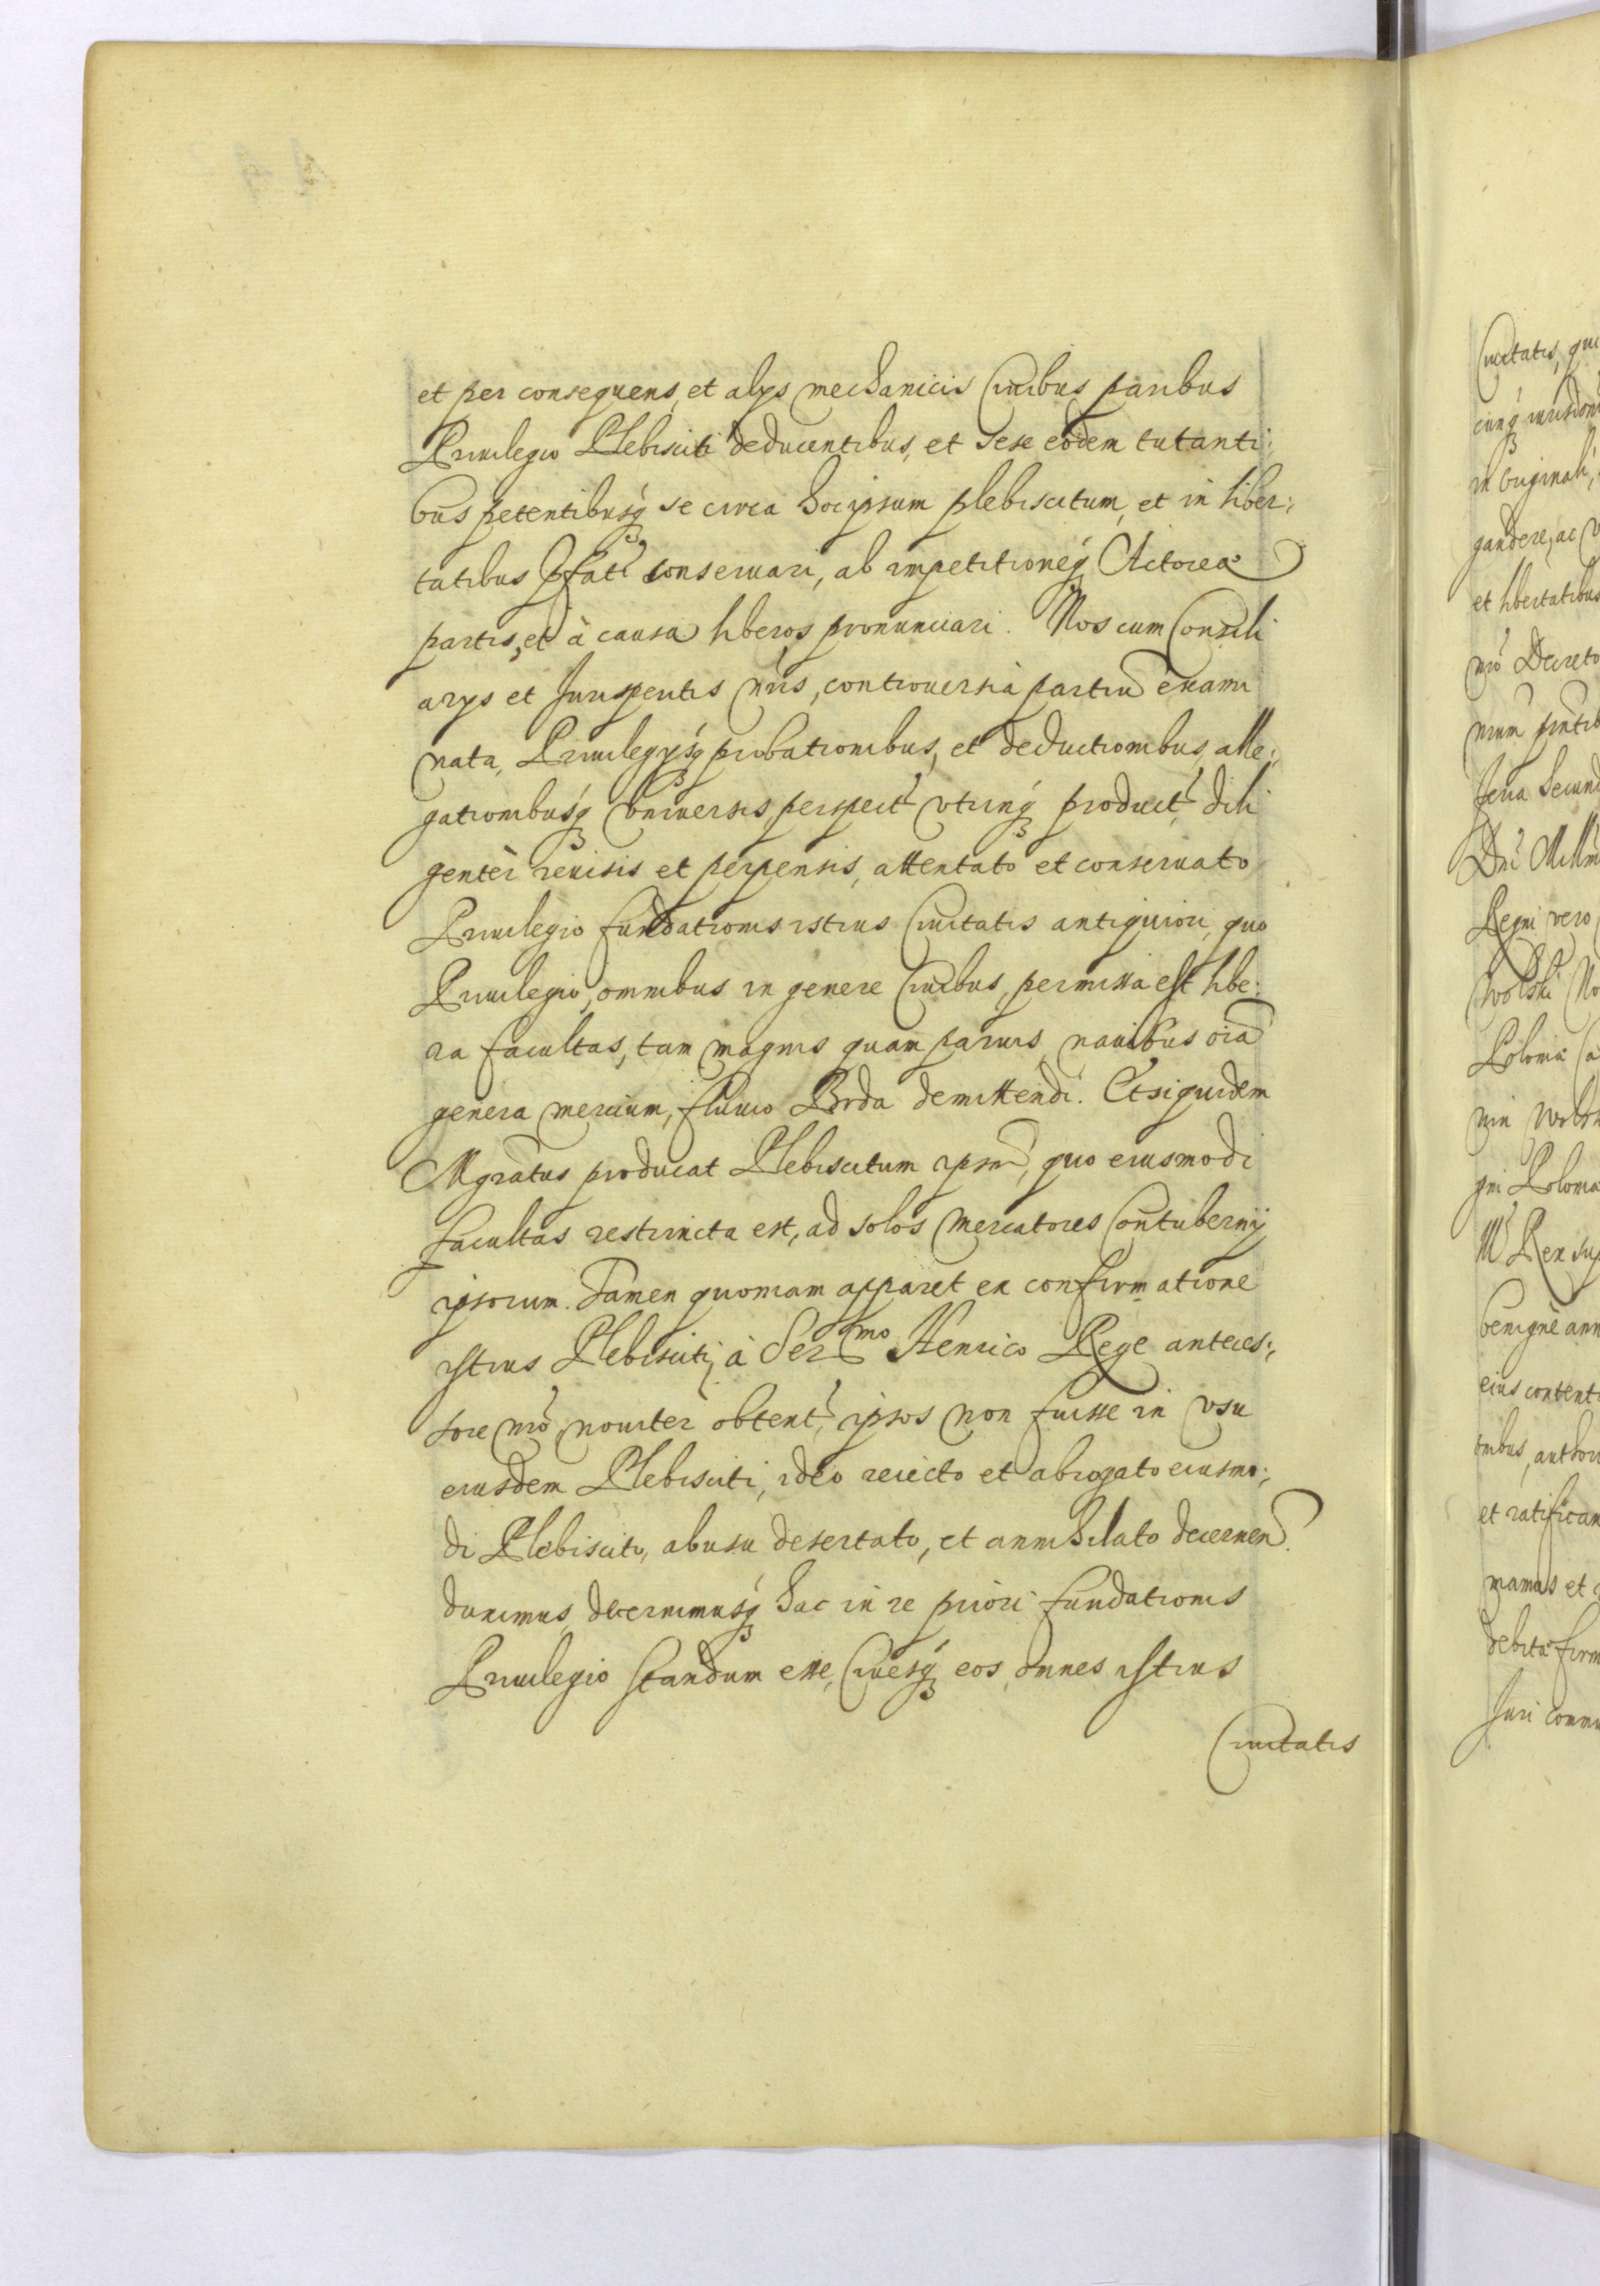 et per consequens, et alys mechanicis Ciuibus paribus
Priuilegio Plebisciti deducentibus, et sese eodem tutanti:
bus petentibusq́ se circa hoc ipsum plebiscitum, et in liber:
tatibus conseruari, ab impetitioneq́ Actorea
partis, et à causa liberos pronunciari. Nos cum Consili
arys et Jurisperitis nr̃is, controuersia partiũ exami
nata, Priuilegysq́ probationibus, et deductionibus, alle:
gationibusq́ vniuersis perspect' vtrinq́ product', dili
gentèr reuisis et perpensis, attentato et conseruato
Priuilegio fundationis istius Ciuitatis antiquiori, quo
Priuilegio, omnibus in genere Ciuibus, permissa est libe:
ra facultas, tam magnis quam paruis nauibus oĩa
genera mercium, fluuio Brda demittendi. Etsiquidem
Mgratus producat Plebiscitum ipsm̃, quo eiusmodi
facultas restrincta est, ad solos Mercatores Contubernÿ
ipsorum. Tamen quoniam apparet ex confirmatione
istius Plebisciti, à Ser^mo Henrico Rege anteces:
sore nr̃o nouiter obtent', ipsos non fuisse in vsu
eiusdem Plebisciti, ideo reiecto et abrogato eiusmo:
di Plebiscito, abusu desertato, et annihilato decernen̄.
duximus, decernimusq́ hac in re priori fundationis
Priuilegio standum esse, Ciuesq́ eos, omnes istius
Ciuitatis
Ciuitatis, qui
in originali,
gaudere, ac
et libertatibus
nr̃o Decreto
Regni vero
Wolski
Poloniæ
gni Polonia
benignè ann
eius content
et ratifican
mamus et
debitæ firm
Juri commu